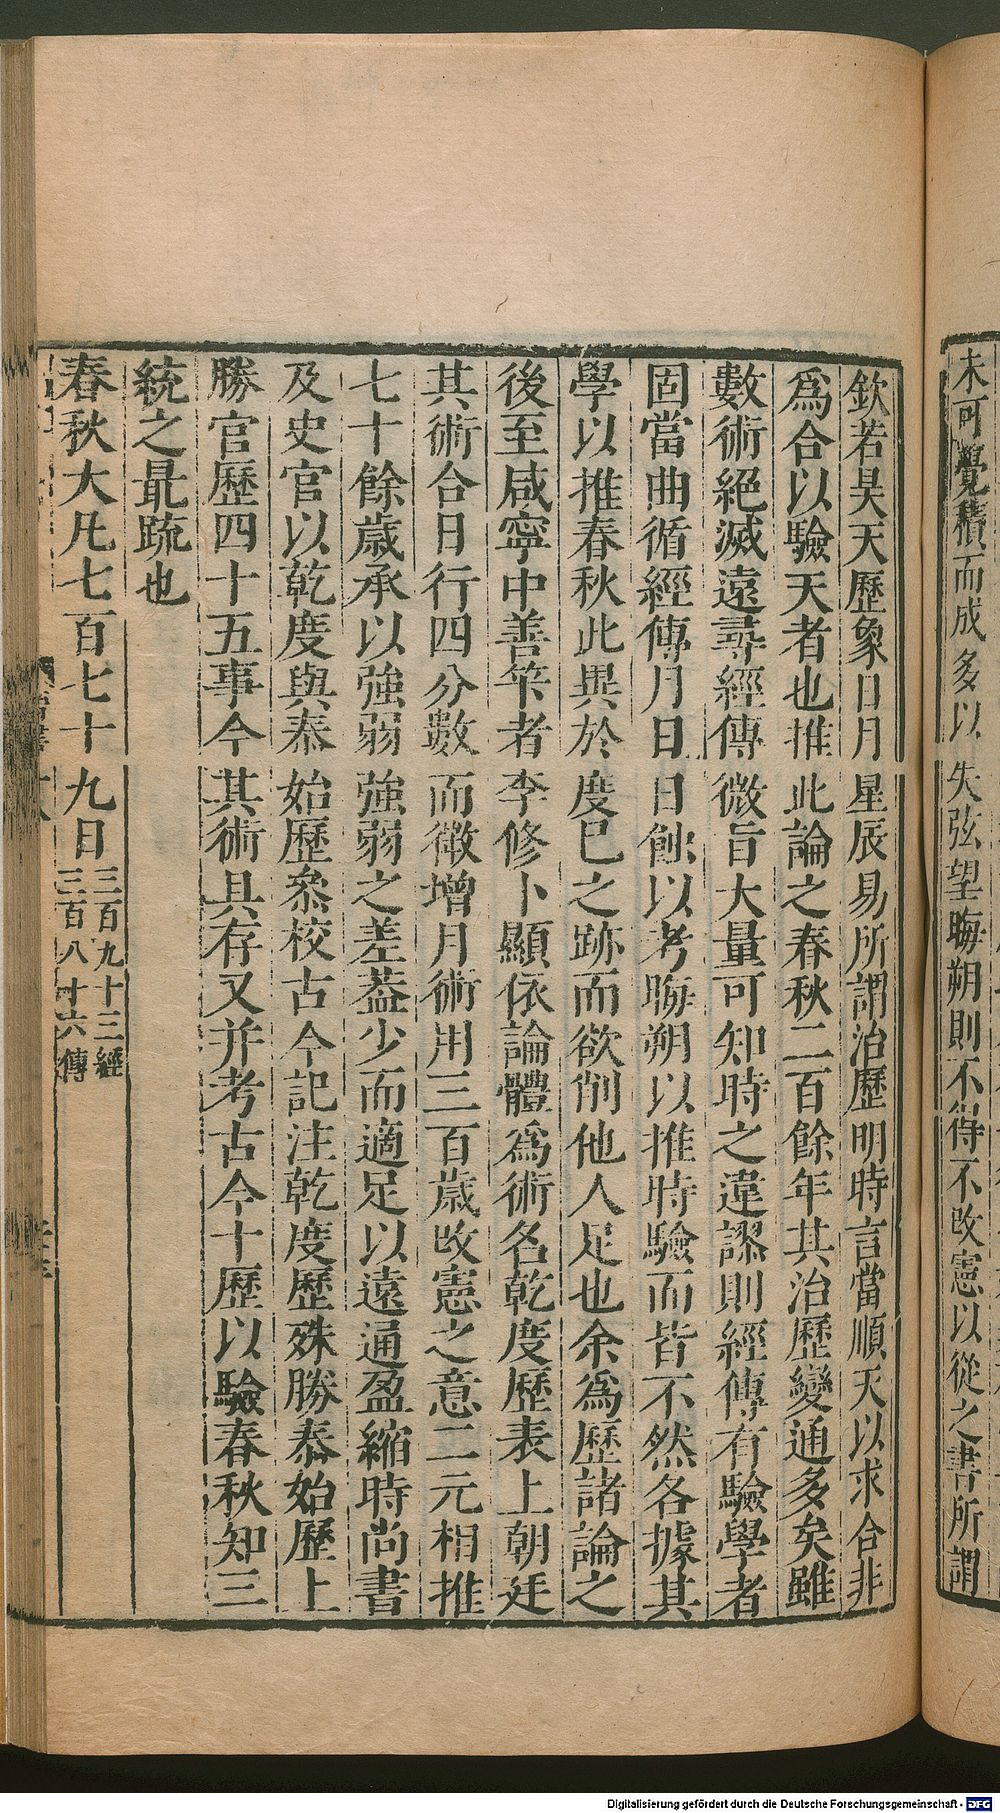 未可覺積而成多以失弦望晦朔則不得不改憲以從之書所謂
欽若昊天歷象日月星辰易所謂治歷明時言當順天以求合非
爲合以驗天者也推此論之春秋二百餘年其治歷變通多矣雖
數術絕滅遠尋經傳微旨大量可知時之違謬則經傳有驗學者
固當曲循經傳月日日蝕以考晦朔以推時驗而皆不然各據其
學以推春秋此異於度已之跡而欲削他人足也余爲歷諸論之
後至咸寧中善筭者李修卜顯依論體爲術名乾度歷表上朝廷
其術合日行四分數而微增月術用三百歲改憲之意二元相推
七十餘歲承以強弱強弱之差葢少而適足以遠通盈縮時尚書
及史官以乾度與泰始歷叅校古今記注乾度歷殊勝泰始歷上
勝官歷四十五事今其術具存又并考古今十歷以驗春秋知三
統之最疏也
春秋大凡七百七十九日三百九十三經
三百八十六傳
Digitalisierung gefördert durch die Deutsche Forschungsgemeinschaft - DFG